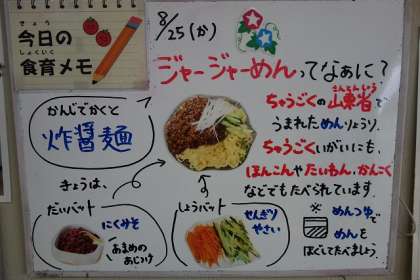 きょう
今日の
しょくいく
食育メモ
8/25(か)
ジャージャーめんってなぁに?
かんじでかくと
炸醤麺
ちゅうごくの山東省で
うまれためんりょうり。
ちゅうごくいがいにも、
ほんこんやたいわん、かんこく
などでもたべられています。
きょうは、
だいバット
にくみそ
あまめの
あじつけ
しょうバット
せんぎり
やさい
※めんつゆで
めんを
ほぐしてたべましょう。